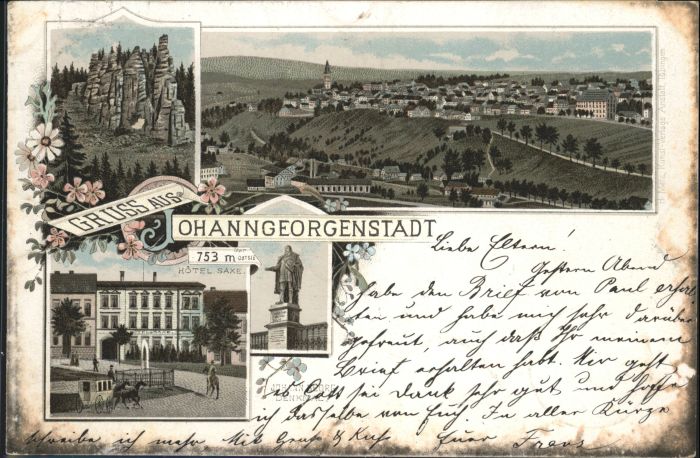 GRUSS AUS
JOHANNGEORGENSTADT
753 m
über
OSTSEE
HÔTEL SAXE.
Liebe Eltern!
Gestern Abend
habe den Brief von Paul erhal-
ten und habe mich sehr darüber
gefreut, auch daß Ihr meinen
Brief erhalten habt. Mir geht
es Gott sei dank sehr gut und hoffe
ich dasselbe von Euch. In aller Kürze
schreibe ich mehr. Mit Gruß & Kuß Euer